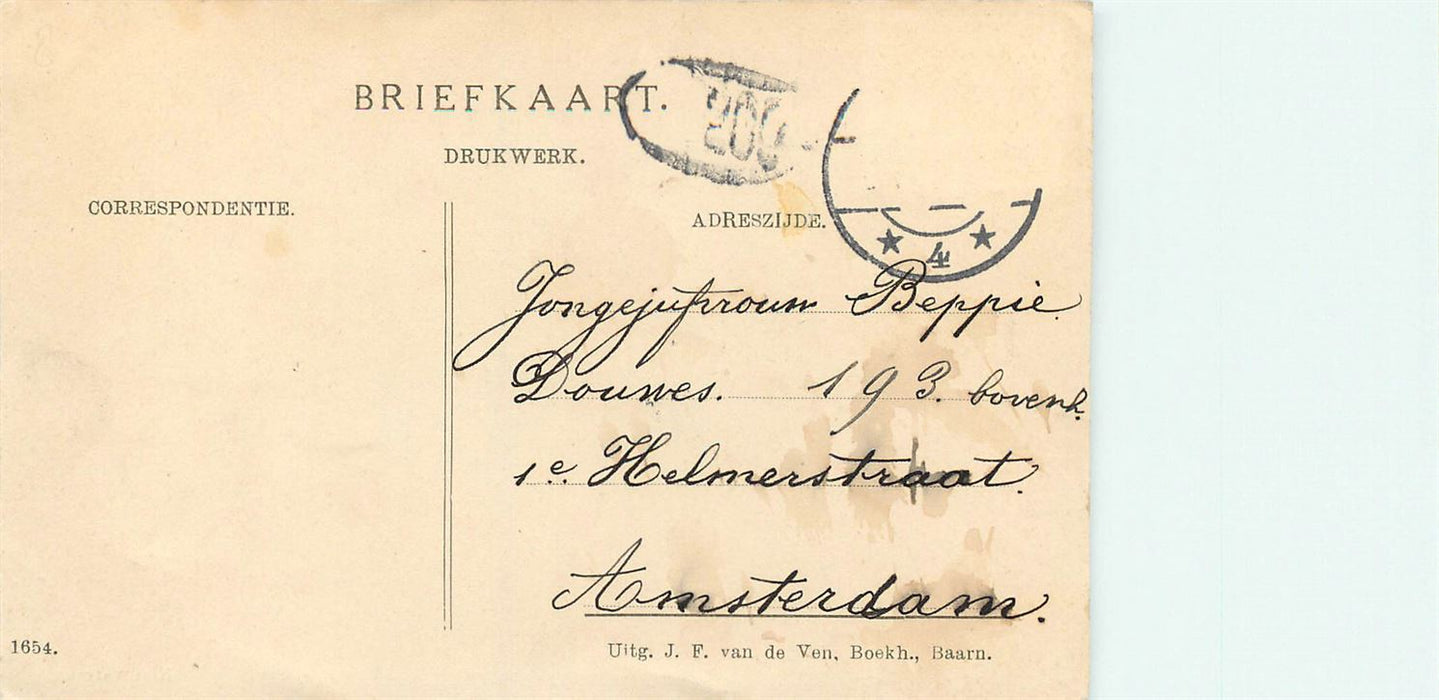 BRIEFKAART.
200
DRUKWERK.
CORRESPONDENTIE.
ADRESZIJDE.
4
Jongejufvrouw Beppie
Douwes. 193. bovenh.
1e. Helmerstraat.
Amsterdam.
1654.
Uitg. J. F. van de Ven, Boekh., Baarn.